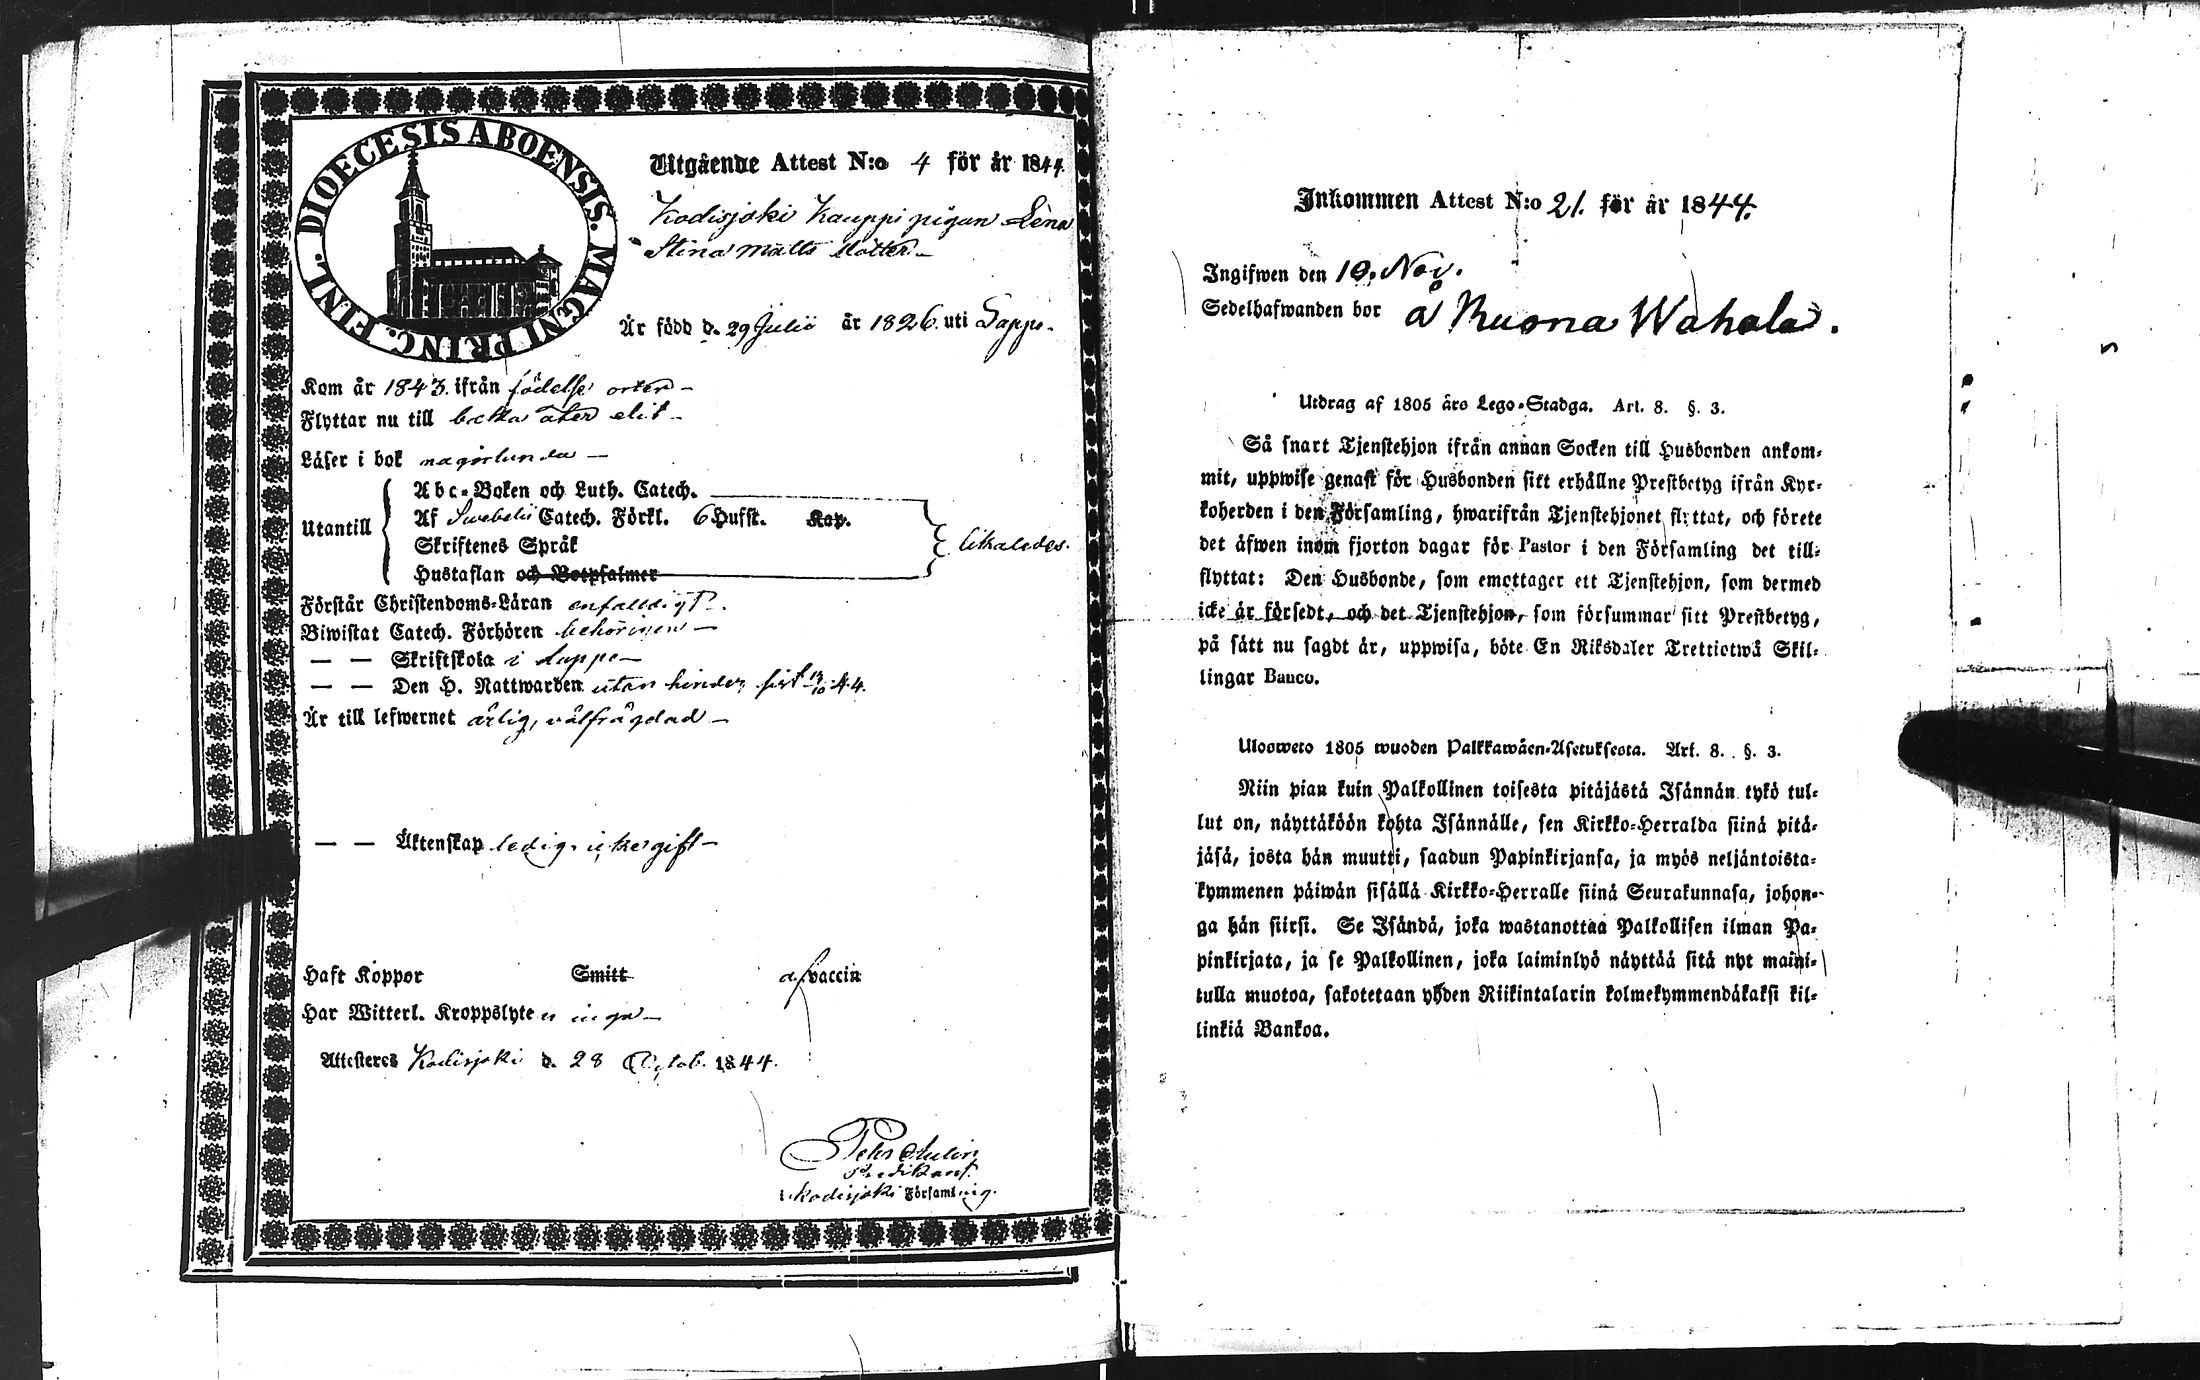 DIOECESIS ABOENSIS. MAGNI PRINC. FINL.
Utgående Attest N:o 4 för år 1844.
Kodisjoki Kauppi pigan Lena
Stina Matts dotter
Är född d. 29 Julii år 1826 uti Lappi.
Kom år 1843 ifrån födelse orten
Flyttar nu till åter dit
Läser i bok någorlunda
Utantill
Abc-Boken och Luth. Catech.
Af Swebelii Catech. Förkl. 6 Hufst. Kap.
Skriftenes Språk
Hustaflan och Botpsalmer
likaledes.
Förstår Christendoms-Läran enfaldigt.
Biwistat Catech. Förhören behörigen
— — Skriftskola i Lappi
— — Den H. Nattwarden utan hinder sist 13/10 44.
Är till lefwernet ärlig, välfrägdad
— — Äktenskap ledig, icke gift
Haft Koppor Smitt af vaccin
Har Witterl. Kroppslyten inga
Attesteras Kodisjoki d. 28 Octob. 1844.
Predikant
i Kodisjoki Församling.
Inkommen Attest N:o 21. för år 1844.
Ingifwen den 10. Nov.
Sedelhafwanden bor å Ruona Wahala.
Utdrag af 1805 års Lego-Stadga. Art. 8. §. 3.
Så snart Tjenstehjon ifrån annan Socken till Husbonden ankom-
mit, uppwise genast för Husbonden sitt erhållne Prestbetyg ifrån Kyr-
koherden i den Församling, hwarifrån Tjenstehjonet flyttat, och förete
det äfwen inom fjorton dagar för Pastor i den Församling det till-
flyttat: Den Husbonde, som emottager ett Tjenstehjon, som dermed
icke är försedt, och det Tjenstehjon, som försummar sitt Prestbetyg,
på sätt nu sagdt är, uppwisa, böte En Riksdaler Trettiotwå Skil-
lingar Banco.
Ulosweto 1805 wuoden Palkkawäen-Asetuksesta. Art. 8. §. 3.
Niin pian kuin Palkollinen toisesta pitäjästä Isännän tykö tul-
lut on, näyttäköön kohta Isännälle, sen Kirkko-Herralda siinä pitä-
jäsä, josta hän muutti, saadun Papinkirjansa, ja myös neljäntoista-
kymmenen päiwän sisällä Kirkko-Herralle siinä Seurakunnasa, johon-
ga hän siirsi. Se Isändä, joka wastanottaa Palkollisen ilman Pa-
pinkirjata, ja se Palkollinen, joka laiminlyö näyttää sitä nyt maini-
tulla muotoa, sakotetaan yhden Riikintalarin kolmekymmendäkaksi kil-
linkiä Bankoa.